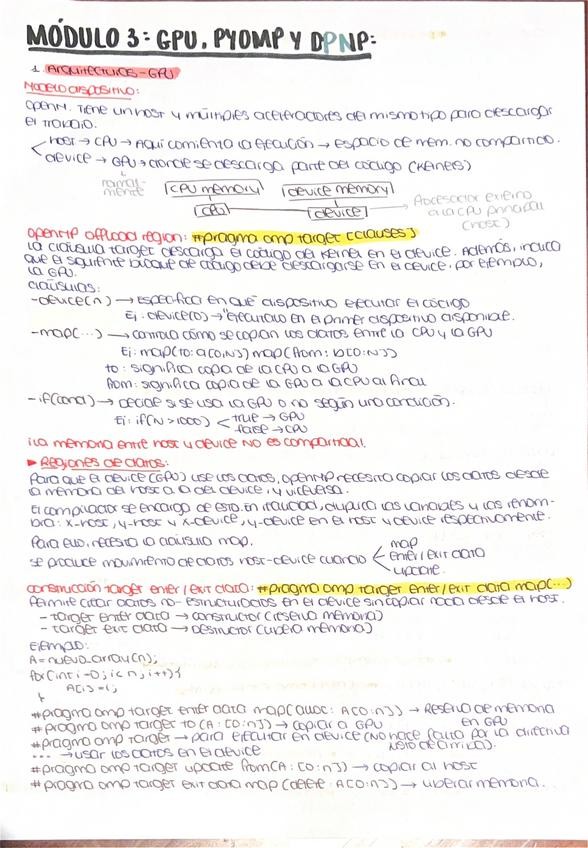 MÓDULO 3: GPU, PYOMP Y DPNP:
1. ARQUITECTURAS-GPU
Modelo dispositivo:
OpenM. Tiene un host y múltiples aceleradores del mismo tipo para descargar
el trabajo.
host → CPU → Aquí comienza la ejecución → espacio de mem. no compartido.
device → GPU → donde se descarga parte del código (Kernels)
normal-
mente
CPU memory device memory
CPU device
Accelerador externo
a la CPU principal
(host)
OpenMP offload region: #pragma omp target [clauses]
la cláusula target descarga el código del kernel en el device. Además, indica
que el siguiente bloque de código debe descargarse en el device. por ejemplo,
la GPU.
cláusulas:
-device(n) → Especifica en qué dispositivo ejecutar el código
Ej: device(0) → "ejecutalo en el primer dispositivo disponible.
-map(...) → controla cómo se copian los datos entre la CPU y la GPU
Ej: map(to: a[0:N]) map(from: b[0:N])
to: significa copia de la CPU a la GPU
from: significa copia de la GPU a la CPU al final
-if(cond) → decide si se usa la GPU o no según una condición.
Ej: if(N>1000) true → GPU
false → CPU
¡La memoria entre host y device NO es compartida!.
► Regiones de datos:
Para que el device (GPU) use los datos, OpenMP necesita copiar los datos desde
la memoria del host a la del device, y viceversa.
El compilador se encarga de esto. En realidad, duplica las variables y las renom-
bra: x-host, y-host y x-device, y-device en el host y device respectivamente.
Para ello, necesita la cláusula map.
se produce movimiento de datos host-device cuando
map
enter/exit data
update.
construcción target enter/exit data: #pragma omp target enter/exit data map(...)
Permite crear datos no-estructurados en el device sin copiar nada desde el host.
- target enter data → constructor (reserva memoria)
- target exit data → destructor (libera memoria)
Ejemplo:
A = nuevo_array(n);
for(int i=0; i<n; i++){
A[i] = i;
}
#pragma omp target enter data map(alloc: A[0:n]) → Reserva de memoria
en GPU
#pragma omp target to (A: [0:n]) → copiar a GPU
#pragma omp target → para ejecutar en device (No hace falta por la directiva
justo de arriba).
... → usar los datos en el device
#pragma omp target update from(A: [0:n]) → copiar al host
#pragma omp target exit data map (delete: A[0:n]) → liberar memoria.